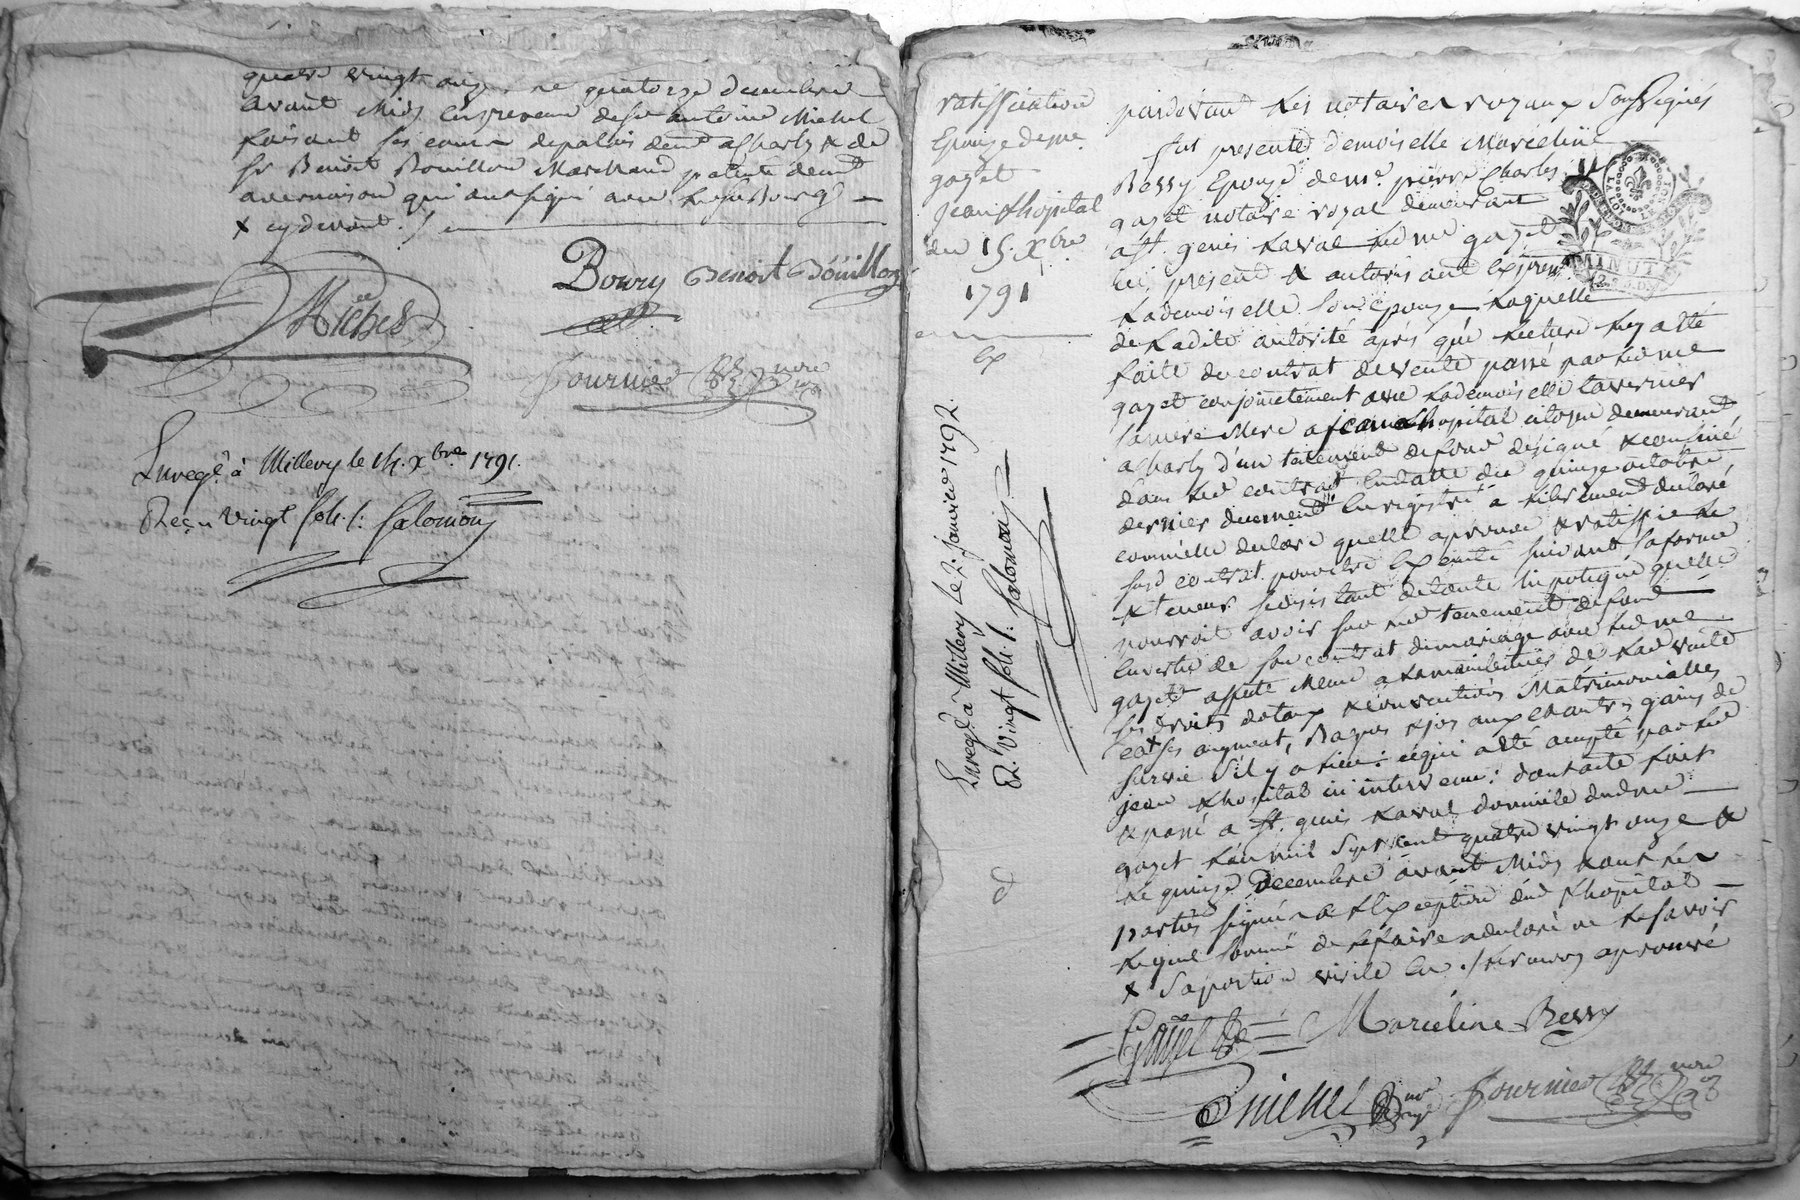 quatre vingt onze, le quatorze decembre
avant Midy En presence de sr antoine Michel
faisant ses cours de palais demt a Charly & de
Sr Benoit Bouillon Marchand patenté demt
a vernaison qui ont signé avec led sr Boury
x cy devant ./
Boury Benoit Bouillon
Michel
fournier nore
Enregé à Millery le 14. Xbre 1791.
Reçu vingt sols /: Salomon
ratiffication
Epouze de me
gayet
jean Lhopital
du 15. Xbre
1791
Ex
Enregé à Millery le 2. janvier 1792.
R. vingt sols /: Salomon
pardevant Les notaires royaux Soussignés
fut presente demoiselle Marceline
Bessy Epouze de me pierre Charles
gayet notaire royal demeurant
a St. genis Laval led me gayet
icy present & autorisant Expressemt
MINUTE
Lademoiselle son Epouze Laquelle
de Ladite autorité après que Lecture Luy a été
faite du contrat de vente passé par led me
gayet conjointement avec Lademoiselle tavernier
sa mere a jean Lhopital citoyen demeurant
a Charly d'un tenement de fond designé & confiné
dans led contrat En datte du quinze octobre
dernier duement Enregistré a Librement declaré
comme Elle declare quelle aprouve & ratiffie Le
susd contrat pour être Executé suivant sa forme
& teneur se desistant de toute hipoteque quelle
pourroit avoir sur led tenement de fond
En vertu de son contrat de mariage avec led me
gayet
ses droits dotaux & conventions Matrimonialles
ses augment, Bagues & joyaux & autres gains de
survie S'il y a Lieu: cequi a été accepté par led
jean Lhopital ici intervenu: dont acte fait
& passé a St. genis Laval domicile dud me
gayet L'an mil Sept cent quatre vingt onze &
le quinze Decembre avant Midy & ont Les
parties signé a L'Exception dud Lhopital
Lequel sommé de le faire a declaré ne le savoir
x Sa portion virile En ./ Le renvoy aprouvé
Gayet Marceline Bessy
Michel fournier nore